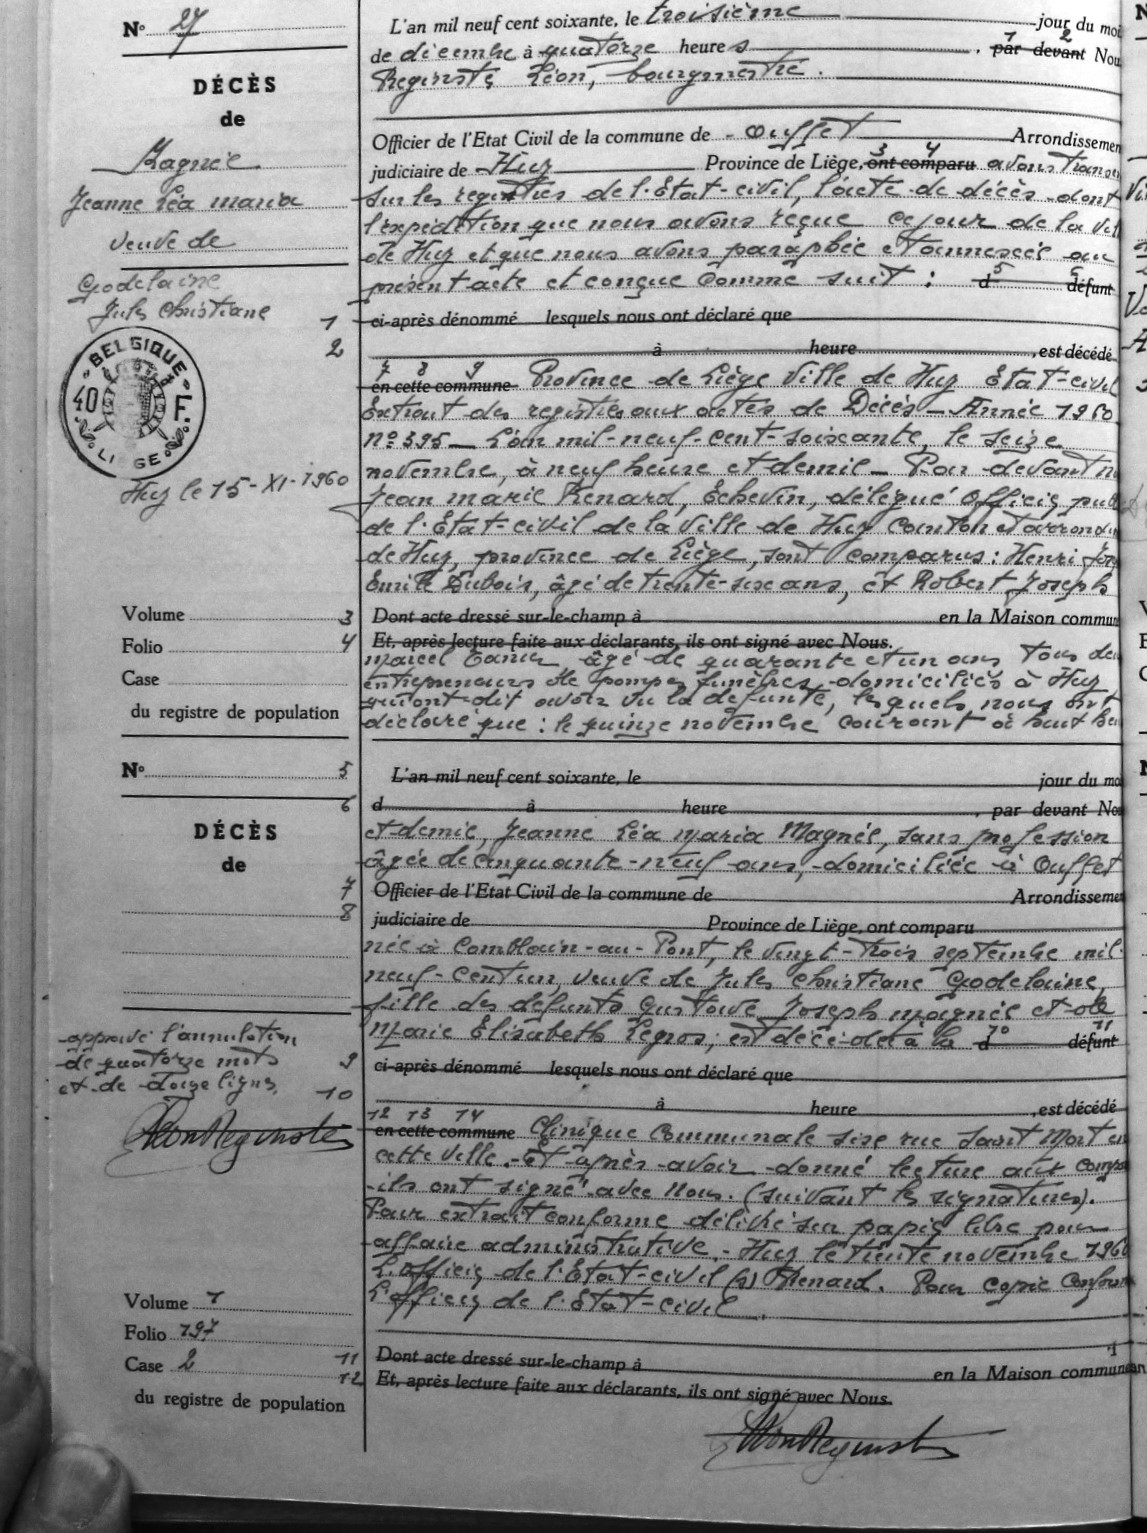 N° 27
DÉCÈS
de
Magnée
Jeanne Léa Maria
veuve de
Godelaine
Jules Christiane
BELGIQUE
40 F.
LIEGE
Huy le 15-XI-1960
Volume
Folio
Case
du registre de population
L'an mil neuf cent soixante, le troisième jour du moi
de décembre à quatorze heures , par devant Nou
1 2
Reginster Léon, bourgmestre.
Officier de l'Etat Civil de la commune de Ouffet Arrondissemen
3 4
judiciaire de Huy Province de Liège, ont comparu avons trans
sur les registres de l'Etat-civil, l'acte de décès dont
l'expédition que nous avons reçue ce jour de la vil
de Huy et que nous avons paraphée et annexée au
présent acte et conçue comme suit : d 5 défunt 6
1 ci-après dénommé lesquels nous ont déclaré que
2 à heure , est décédé
7 8 9
en cette commune Province de Liège Ville de Huy Etat-civil
Extrait des registres aux actes de Décès - Année 1960
n° 395 - L'an mil-neuf-cent-soixante, le seize
novembre, à neuf heure et demie - Par devant n
Jean Marie Renard, Echevin, délégué Officier, publ
de l'Etat-civil de la Ville de Huy Canton et arrondis
de Huy, province de Liège, sont comparus : Henri Jos
Emile Dubois, âgé de trente-six ans, et Robert Joseph
3 Dont acte dressé sur-le-champ à en la Maison commun
4 Et, après lecture faite aux déclarants, ils ont signé avec Nous.
Marcel âgé de quarante et un ans tous deu
entrepreneurs de pompes funèbres domiciliés à Huy
qui ont dit avoir vu la défunte, lesquels nous ont
déclaré que : le quinze novembre courant à huit heu
N° 5
DÉCÈS
de
L'an mil neuf cent soixante, le jour du moi
6 d à heure , par devant Nou
et demie, Jeanne Léa Maria Magnée, sans profession
âgée de cinquante-neuf ans, domiciliée à Ouffet
7 Officier de l'Etat Civil de la commune de Arrondissemen
8 judiciaire de Province de Liège, ont comparu
née à Comblain-au-Pont, le vingt-trois septembre mil-
neuf-cent un, veuve de Jules Christiane Godelaine,
fille des défunts Gustave Joseph Magnée et de
Marie Elisabeth Legros, est décédée à la d 10 défunt 11
9 ci-après dénommé lesquels nous ont déclaré que
10 à heure , est décédé
12 13 14
en cette commune Clinique Communale sise rue Saint Mort en
cette ville. Et après avoir donné lecture aux compa
ils ont signé avec Nous. (suivant les signatures).
Pour extrait conforme délivré sur papier libre pour
affaire administrative - Huy le trente novembre 1960
L'officier de l'Etat-civil (s) Renard. Pour copie conforme
L'officier de l'Etat-civil
11 Dont acte dressé sur-le-champ à en la Maison commun
12 Et, après lecture faite aux déclarants, ils ont signé avec Nous.
Léon Reginster
approuvé l'annulation
de quatorze mots
et de douze lignes
Léon Reginster
Volume 1
Folio 197
Case 2
du registre de population